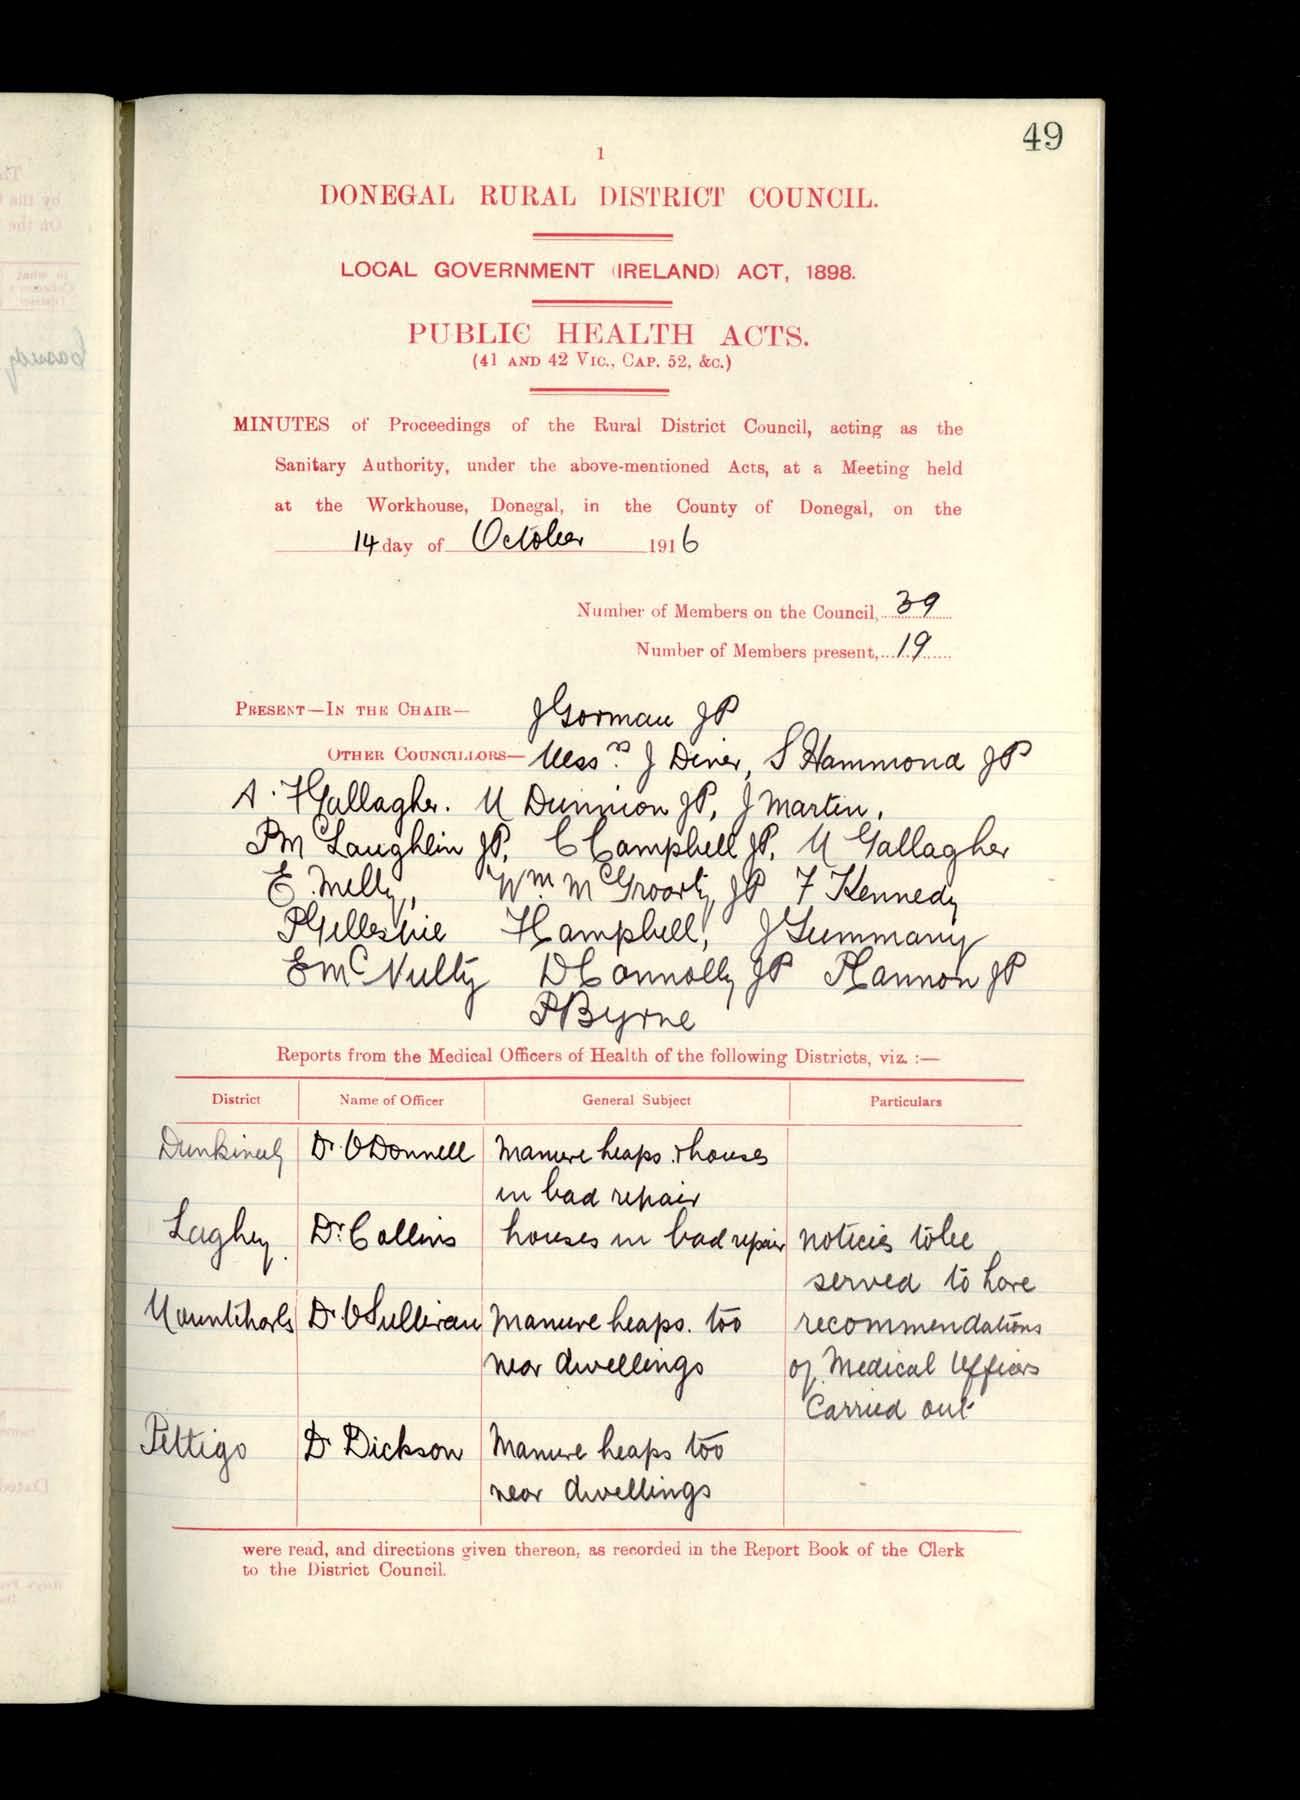 49
1
DONEGAL RURAL DISTRICT COUNCIL.
LOCAL GOVERNMENT (IRELAND) ACT, 1898.
PUBLIC HEALTH ACTS.
(41 AND 42 VIC., CAP. 52, &C.)
MINUTES of Proceedings of the Rural District Council, acting as the
Sanitary Authority, under the above-mentioned Acts, at a Meeting held
at the Workhouse, Donegal, in the County of Donegal, on the
14 day of October 1916
Number of Members on the Council, 39
Number of Members present, 19
PRESENT—IN THE CHAIR— J Gorman JP
OTHER COUNCILLORS— Messrs. J Diver, S Hammond JP
A. F Gallagher. M Dunnion JP, J Martin,
P McLaughlin JP, C Campbell JP, M Gallagher
E. Melly, Wm McGroarty JP F Kennedy
P Gillespie F Campbell, J Summany
E McNulty D Connolly JP P Cannon JP
P Byrne
Reports from the Medical Officers of Health of the following Districts, viz. :—
District Name of Officer General Subject Particulars
Dunkineely Dr. O'Donnell Manure heaps & houses
in bad repair
Laghey. Dr. Collins houses in bad repair notices to be
served to have
Mountcharles Dr. O'Sullivan Manure heaps. too recommendations
near dwellings of Medical Officers
Carried out
Pettigo Dr Dickson Manure heaps too
near dwellings
were read, and directions given thereon, as recorded in the Report Book of the Clerk
to the District Council.